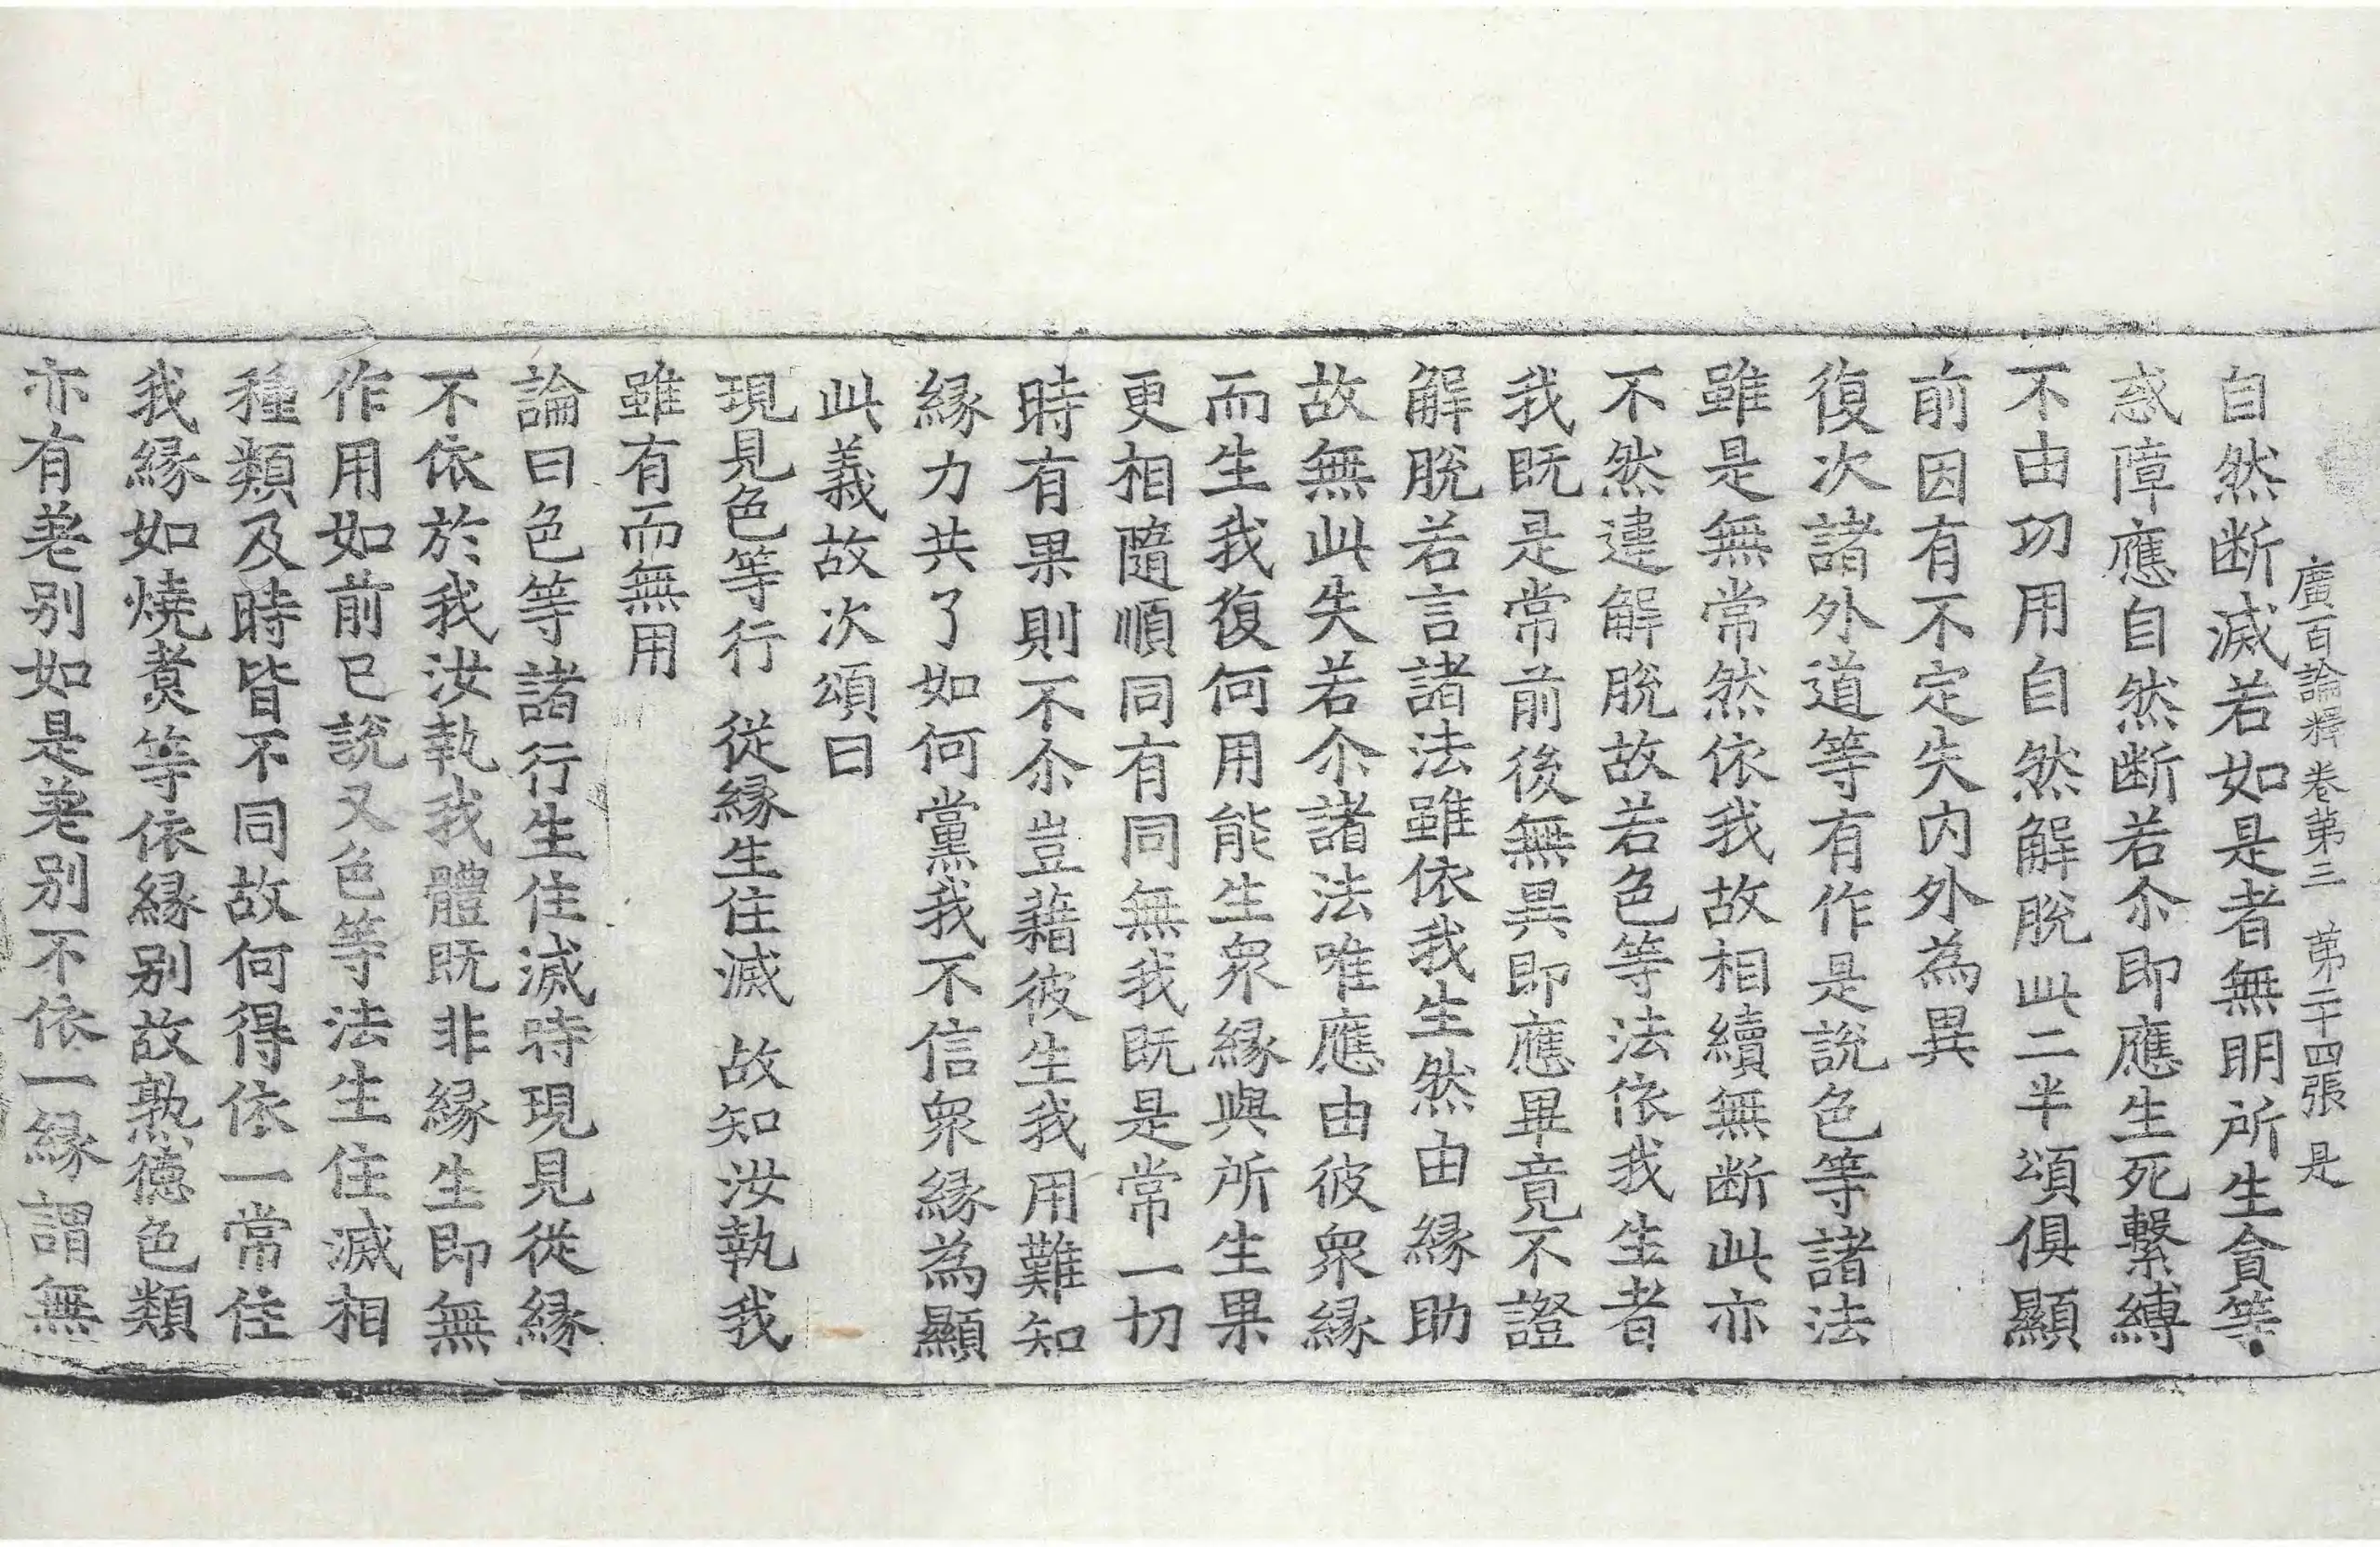 廣百論釋卷第三 苐二十四張 是
自然断滅若如是者無明所生貪等
惑障應自然断若尒即應生死繫縛
不由功用自然解脫此二半頌俱顯
前因有不定失内外為異
復次諸外道等有作是說色等諸法
雖是無常然依我故相續無断此亦
不然違解脫故若色等法依我生者
我既是常前後無異即應畢竟不證
解脫若言諸法雖依我生然由縁助
故無此失若尒諸法唯應由彼衆縁
而生我復何用能生衆縁與所生果
更相隨順同有同無我既是常一切
時有果則不尒豈藉彼生我用難知
縁力共了如何黨我不信衆縁為顯
此義故次頌曰
現見色等行 從縁生住滅 故知汝執我
雖有而無用
論曰色等諸行生住滅時現見從縁
不依於我汝執我體既非縁生即無
作用如前已說又色等法生住滅相
種類及時皆不同故何得依一常住
我縁如燒煑等依縁別故熟德色類
亦有差別如是差別不依一縁謂無